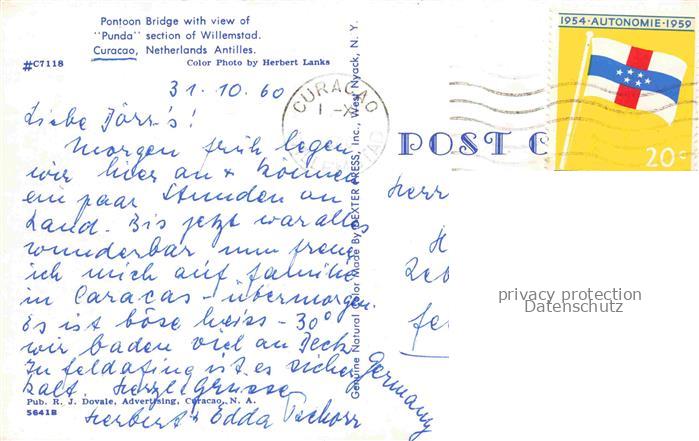 Pontoon Bridge with view of
"Punda" section of Willemstad.
Curacao, Netherlands Antilles.
#C7118
Color Photo by Herbert Lanks
31.10.60
Liebe Dörr's!
Morgen früh legen
wir hier an + können
ein paar Stunden an
Land. Bis jetzt war alles
wunderbar nun freue
ich mich auf Familie
in Caracas - übermorgen.
Es ist böse heiss - 30°
wir baden viel an Deck
In Feldafing ist es sicher
kalt. Herzl. Grüsse
Herbert + Edda Tschorr
Pub. R. J. Dovale, Advertising, Curacao, N. A.
56418
Genuine Natural Color Made By DEXTER PRESS, Inc., West Nyack, N. Y.
CURAÇAO
1 -X
1954·AUTONOMIE·1959
20c
POST C
Herrn
H
Feld
Germany
privacy protection
Datenschutz